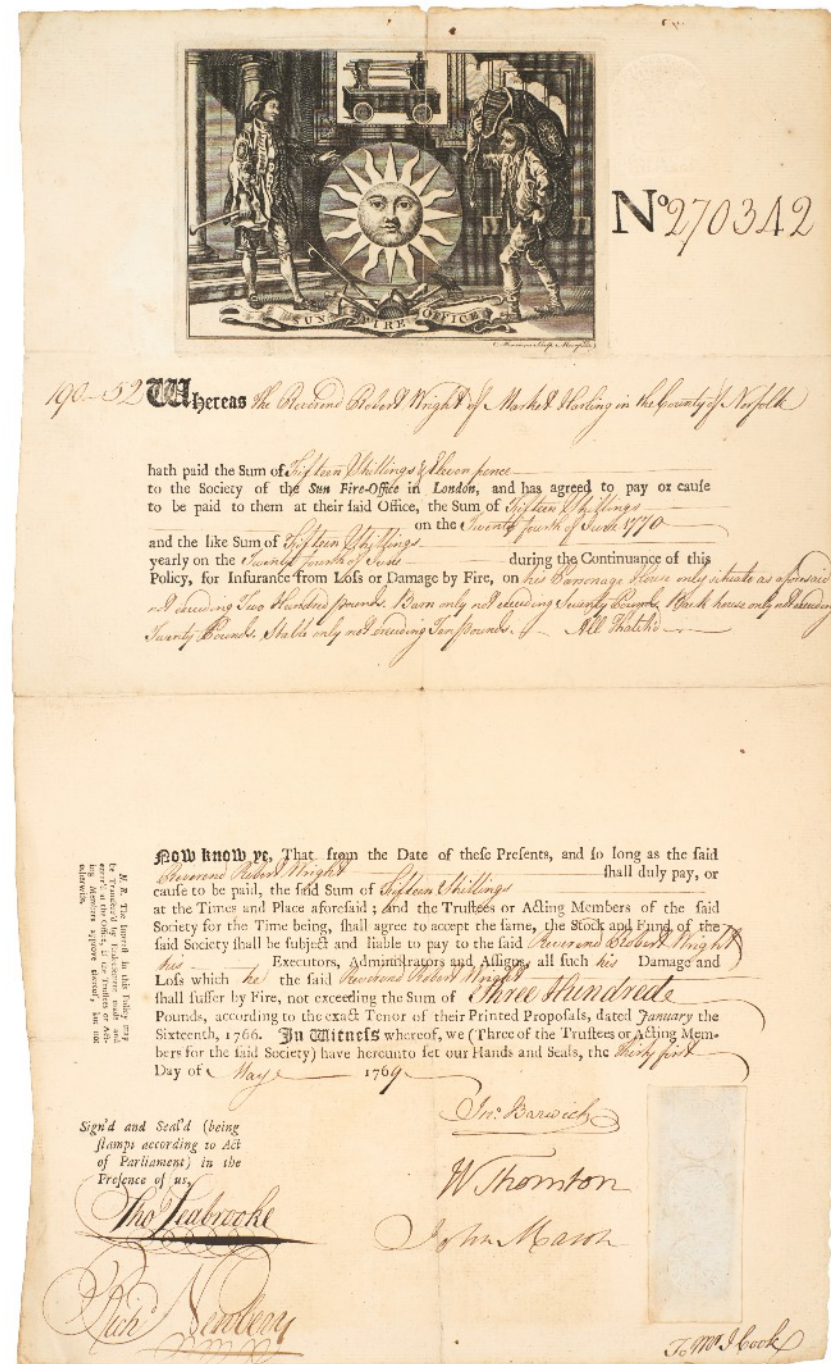 SUN FIRE OFFICE
No 270342
190-52 Whereas the Reverend Robert Wright of Market Harling in the County of Norfolk
hath paid the Sum of Fifteen Shillings & Eleven pence
to the Society of the Sun Fire-Office in London, and has agreed to pay or cauſe
to be paid to them at their ſaid Office, the Sum of Fifteen Shillings
on the Twenty fourth of June 1770
and the like Sum of Fifteen Shillings
yearly on the Twenty fourth of June during the Continuance of this
Policy, for Inſurance from Loſs or Damage by Fire, on his Parsonage House only situate as aforesaid
not exceeding Two Hundred pounds. Barn only not exceeding Seventy Pounds. Back house only not exceeding
Twenty Pounds. Stable only not exceeding Ten pounds. All Thatch'd
N. B. The Intereſt in this Policy may
be Transferr'd by Endorſement made and
enter'd at the Office, if the Truſtees or Act-
ing Members approve thereof, but not
otherwiſe.
Now know ye, That from the Date of theſe Preſents, and ſo long as the ſaid
Reverend Robert Wright ſhall duly pay, or
cauſe to be paid, the ſaid Sum of Fifteen Shillings
at the Times and Place aforeſaid; and the Truſtees or Acting Members of the ſaid
Society for the Time being, ſhall agree to accept the ſame, the Stock and Fund of the
ſaid Society ſhall be ſubject and liable to pay to the ſaid Reverend Robert Wright
his Executors, Adminiſtrators and Aſſigns, all ſuch his Damage and
Loſs which he the ſaid Reverend Robert Wright
ſhall ſuffer by Fire, not exceeding the Sum of Three Hundrede
Pounds, according to the exact Tenor of their Printed Propoſals, dated January the
Sixteenth, 1766. In Witneſs whereof, we (Three of the Truſtees or Acting Mem-
bers for the ſaid Society) have hereunto ſet our Hands and Seals, the thirty first
Day of May 1769
Sign'd and Seal'd (being
ſtampt according to Act
of Parliament) in the
Preſence of us,
Tho Seabrooke
Richd Newbery
Jno. Barwick
W Thornton
John Mason
To Mr J Cook